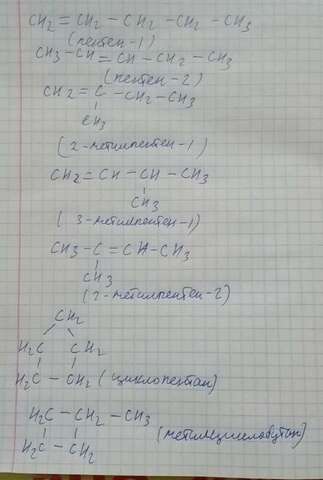 CH₂=CH₂-CH₂-CH₂-CH₃
(пентен-1)
CH₃-CH=CH-CH₂-CH₃
(пентен-2)
CH₂=C-CH₂-CH₃
CH₃
(2-метилпентен-1)
CH₂=CH-CH-CH₃
CH₃
(3-метилпентен-1)
CH₃-C=CH-CH₃
CH₃
(2-метилпентен-2)
CH₂
H₂C CH₂
H₂C-CH₂ (циклопентан)
H₂C-CH₂-CH₃
(метилциклобутан)
H₂C-CH₂